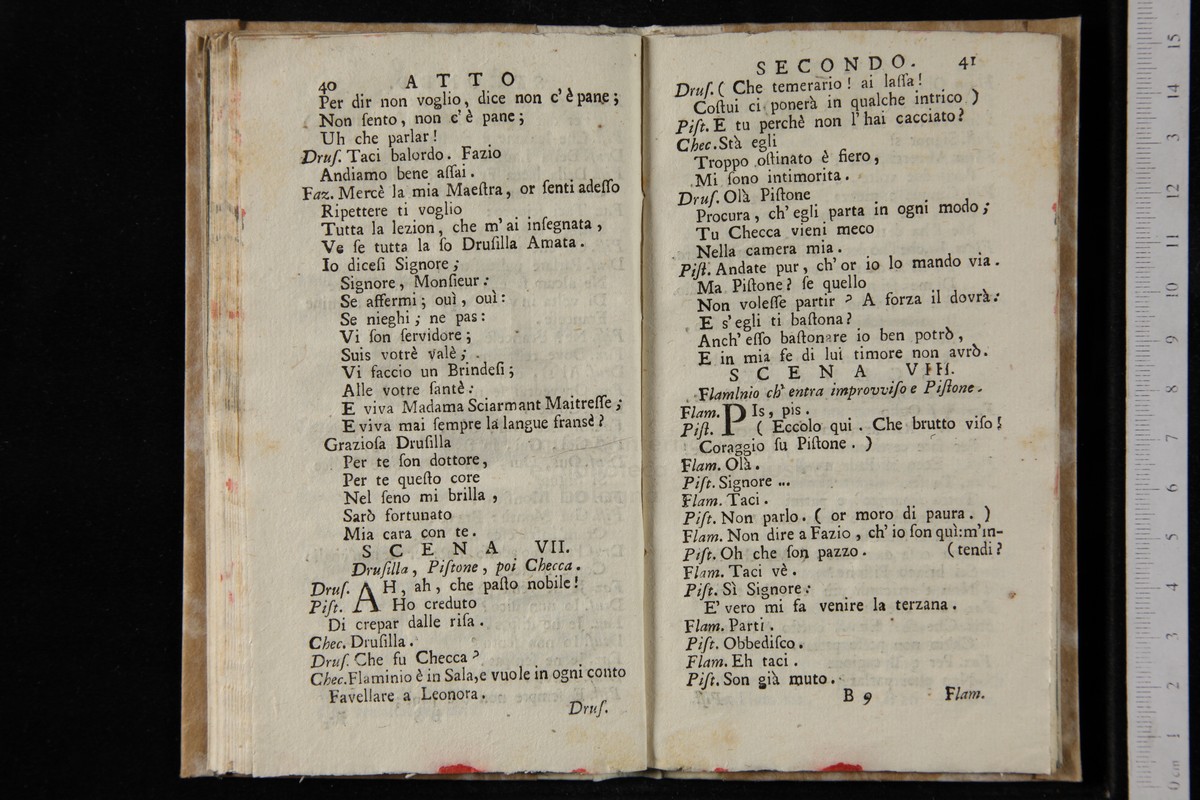 40 ATTO
Per dir non voglio, dice non c'è pane;
Non ſento, non c'è pane;
Uh che parlar!
Druſ. Taci balordo. Fazio
Andiamo bene aſſai.
Faz. Mercè la mia Maeſtra, or ſenti adeſſo
Ripettere ti voglio
Tutta la lezion, che m'ai inſegnata,
Ve ſe tutta la ſo Druſilla Amata.
Io diceſi Signore;
Signore, Monſieur:
Se affermi; ouì, ouì:
Se nieghi; ne pas:
Vi ſon ſervidore;
Suis votrè valè;
Vi faccio un Brindeſi;
Alle votre ſantè:
E viva Madama Sciarmant Maitreſſe;
E viva mai ſempre la langue fransè?
Grazioſa Druſilla
Per te ſon dottore,
Per te queſto core
Nel ſeno mi brilla,
Sarò fortunato
Mia cara con te.
SCENA VII.
Druſilla, Piſtone, poi Checca.
Druſ. AH, ah, che paſto nobile!
Piſt. Ho creduto
Di crepar dalle riſa.
Chec. Druſilla.
Druſ. Che fu Checca?
Chec. Flaminio è in Sala, e vuole in ogni conto
Favellare a Leonora.
Druſ.
SECONDO. 41
Druſ. ( Che temerario! ai laſſa!
Coſtui ci ponerà in qualche intrico )
Piſt. E tu perchè non l'hai cacciato?
Chec. Stà egli
Troppo oſtinato è fiero,
Mi ſono intimorita.
Druſ. Olà Piſtone
Procura, ch'egli parta in ogni modo;
Tu Checca vieni meco
Nella camera mia.
Piſt. Andate pur, ch'or io lo mando via.
Ma Piſtone? ſe quello
Non voleſſe partir? A forza il dovrà:
E s'egli ti baſtona?
Anch'eſſo baſtonare io ben potrò,
E in mia fe di lui timore non avrò.
SCENA VIII.
Flamlnio ch'entra improvviſo e Piſtone.
Flam. PIs, pis.
Piſt. ( Eccolo qui. Che brutto viſo!
Coraggio ſu Piſtone. )
Flam. Olà.
Piſt. Signore ...
Flam. Taci.
Piſt. Non parlo. ( or moro di paura. )
Flam. Non dire a Fazio, ch'io ſon quì: m'in-
Piſt. Oh che ſon pazzo. (tendi?
Flam. Taci vè.
Piſt. Sì Signore:
E' vero mi fa venire la terzana.
Flam. Parti.
Piſt. Obbediſco.
Flam. Eh taci.
Piſt. Son già muto.
B 9 Flam.
15
14
13
12
11
10
9
8
7
6
5
4
3
2
1
0 cm